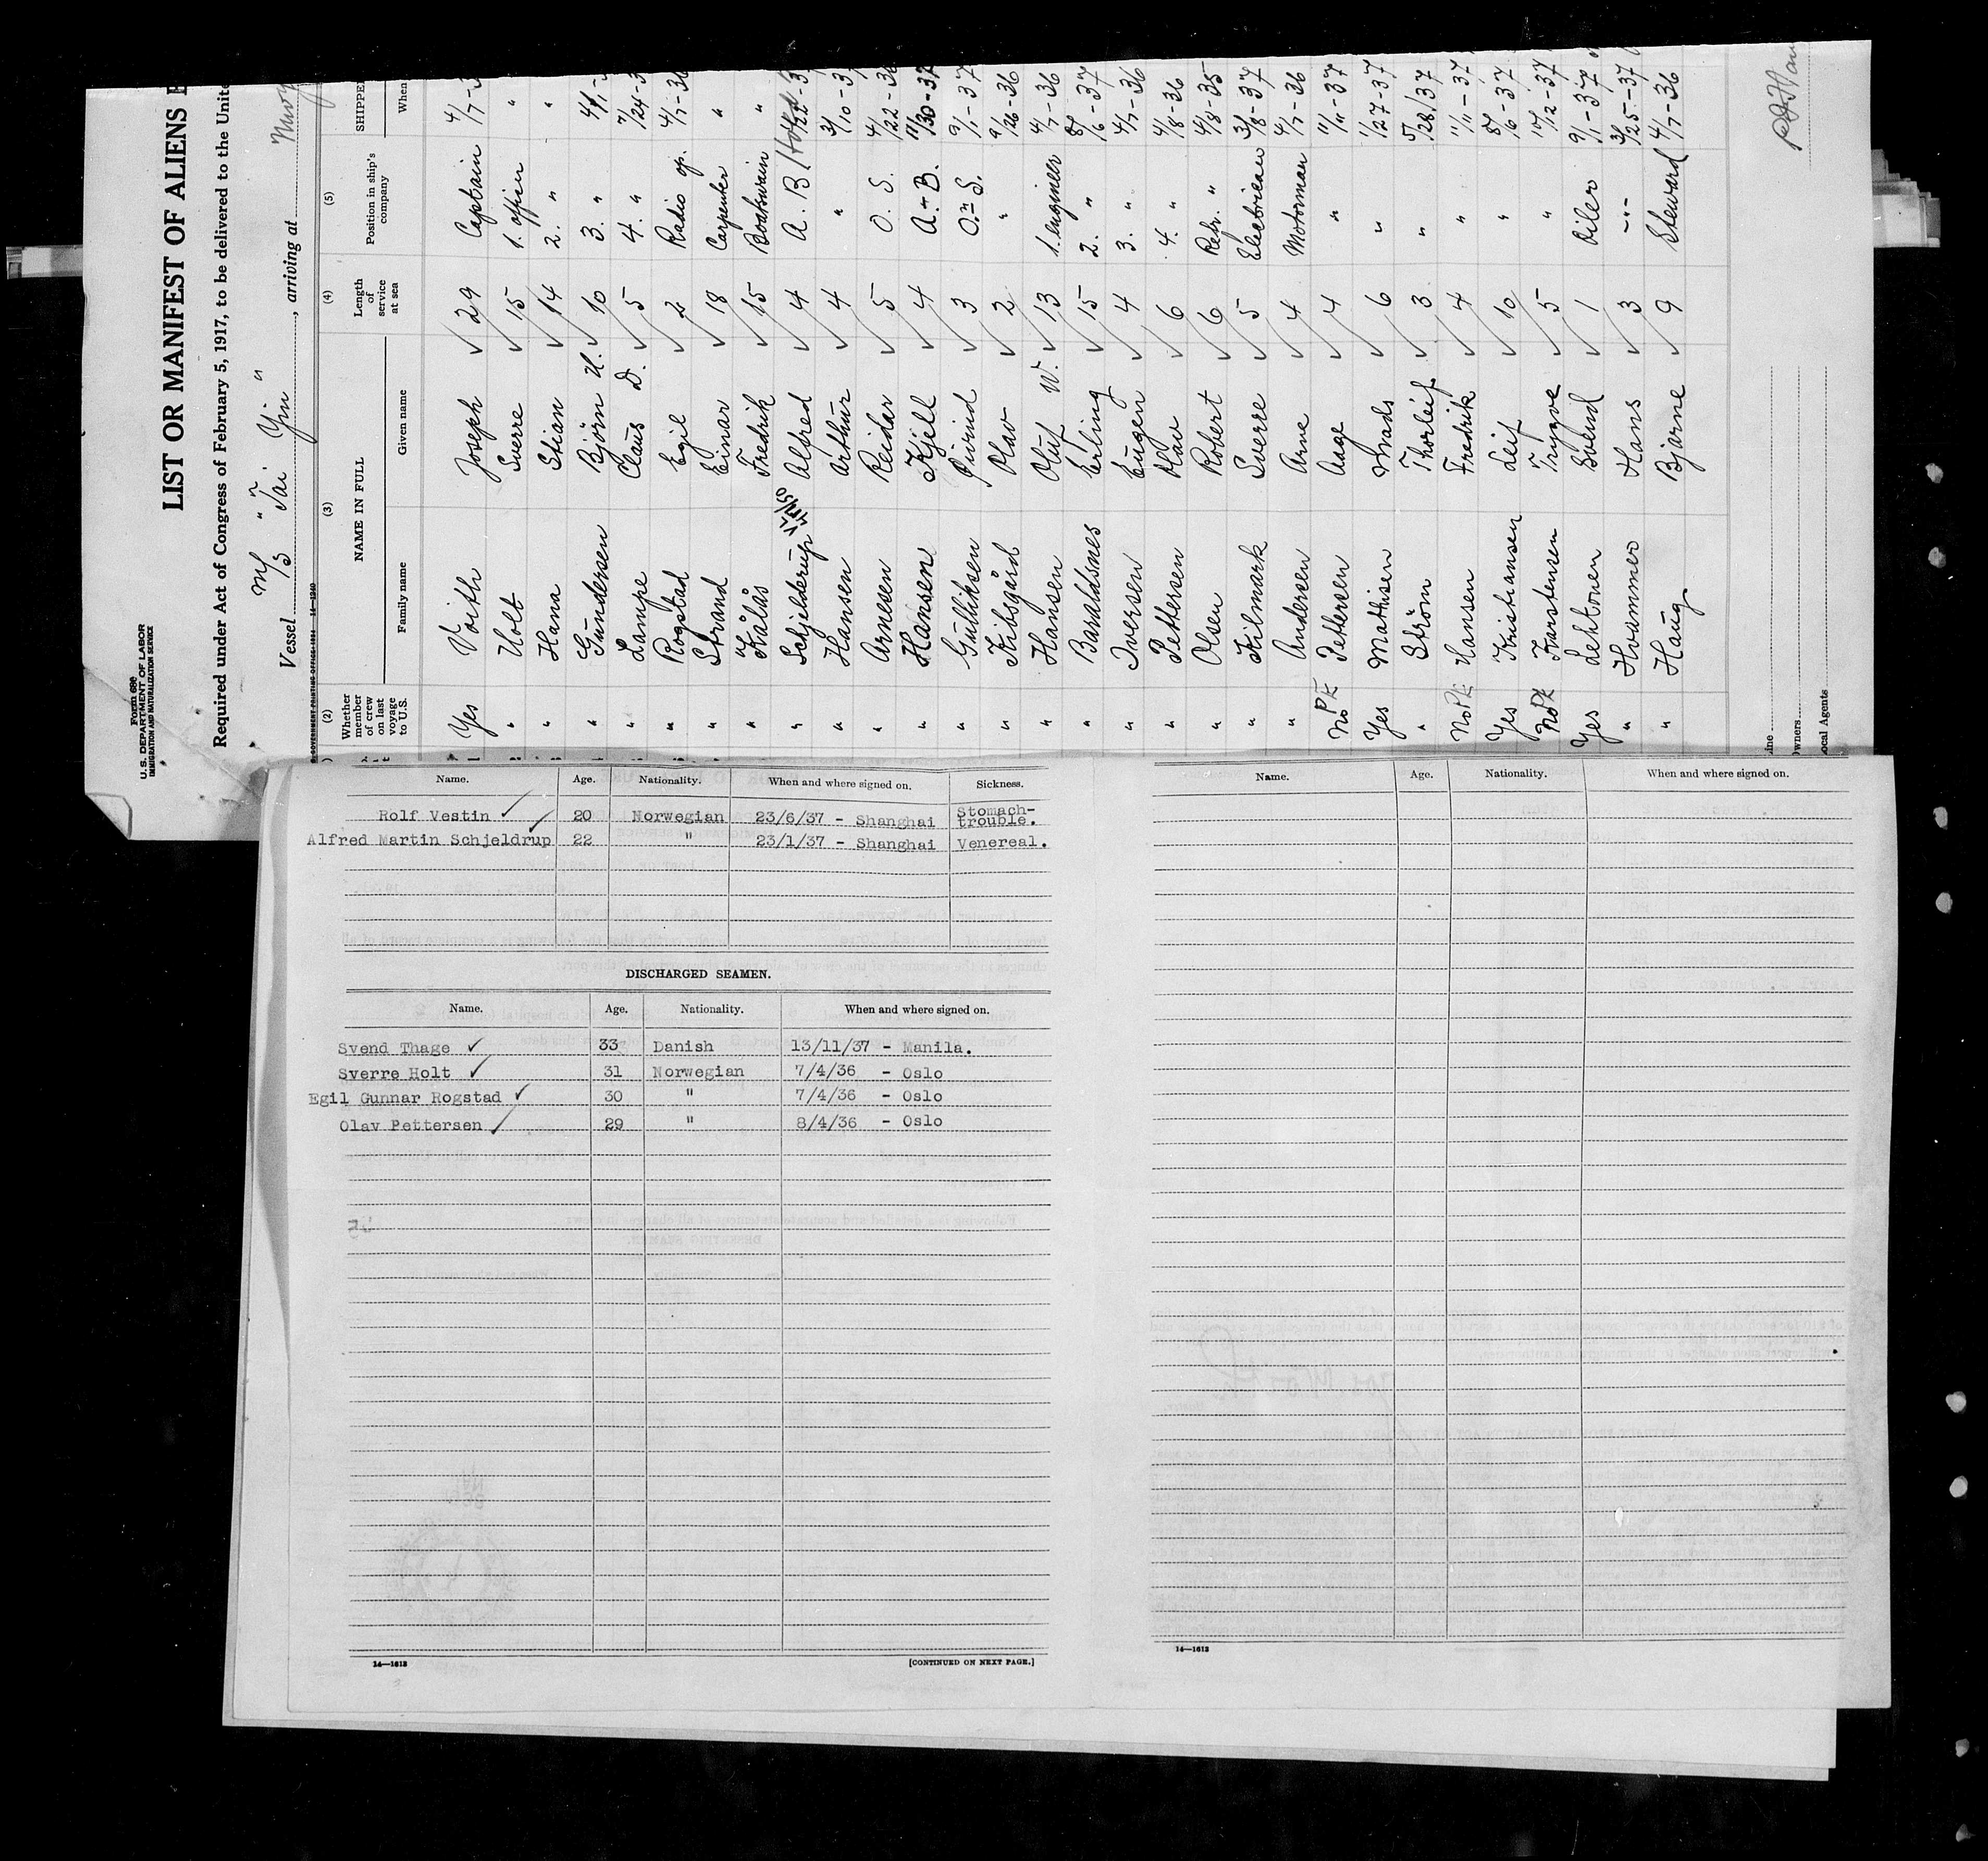 Form 680
U. S. DEPARTMENT OF LABOR
IMMIGRATION AND NATURALIZATION SERVICE
LIST OR MANIFEST OF ALIENS
Required under Act of Congress of February 5, 1917, to be delivered to the
Vessel M/S "Tai Yin", arriving at
(2) (3) (4) (5)
Whether member of crew on last voyage to U.S. NAME IN FULL Length of service at sea Position in ship's company SHIPPED
Family name Given name When
Yes Voith Joseph 29 Captain
" Holt Sverre 15 1. officer "
" Hana Stian 14 2. " "
" Gundersen Björn 10 3. "
" Lampe Claus D. 5 4. "
" Rogstad Egil 2 Radio op. 4/7-36
" Strand Einar 18 Carpenter "
" Kålås Fredrik 15 Boatswain "
" Schjelderup Alfred 4 A. B.
" Hansen Arthur 4 "
" Arnesen Reidar 5 O. S. 4/22-36
" Hansen Kjell 4 A-B. 11/30-37
" Gulliksen Öivind 3 O.-S. 9/1-37
" Kibsgård Olav 2 " 9/26-36
" Hansen Oluf W. 13 1. engineer 4/7-36
" Baraldsnes Erling 15 2. " 8/16-37
" Iversen Eugen 4 3. " 4/7-36
" Pettersen Olav 6 4. " 4/8-36
" Olsen Robert 6 Refr. " 4/8-35
" Kilmark Sverre 5 Electrician 3/8-37
" Andersen Arne 4 Motorman 4/7-36
No PE Pettersen Aage 4 " 11/11-37
Yes Mathisen Mads 6 " 1/27-37
" Ström Thorleif 3 " 5/28/37
No PE Hansen Fredrik 4 " 11/11-37
Yes Kristiansen Leif 10 " 8/16-37
No PE Karstensen Trygve 5 " 10/12-37
Yes Lehtonen Svend 1 Oiler 9/1-37
" Hvammer Hans 3 -"- 3/25-37
" Haug Bjarne 9 Steward 4/7-36
Local Agents
Name. Age. Nationality. When and where signed on. Sickness.
Rolf Vestin 20 Norwegian 23/6/37 - Shanghai Stomach-trouble.
Alfred Martin Schjeldrup 22 " 23/1/37 - Shanghai Venereal.
DISCHARGED SEAMEN.
Name. Age. Nationality. When and where signed on.
Svend Thage 33 Danish 13/11/37 - Manila.
Sverre Holt 31 Norwegian 7/4/36 - Oslo
Egil Gunnar Rogstad 30 " 7/4/36 - Oslo
Olav Pettersen 29 " 8/4/36 - Oslo
14—1613 [CONTINUED ON NEXT PAGE.]
Name. Age. Nationality. When and where signed on.
14—1613